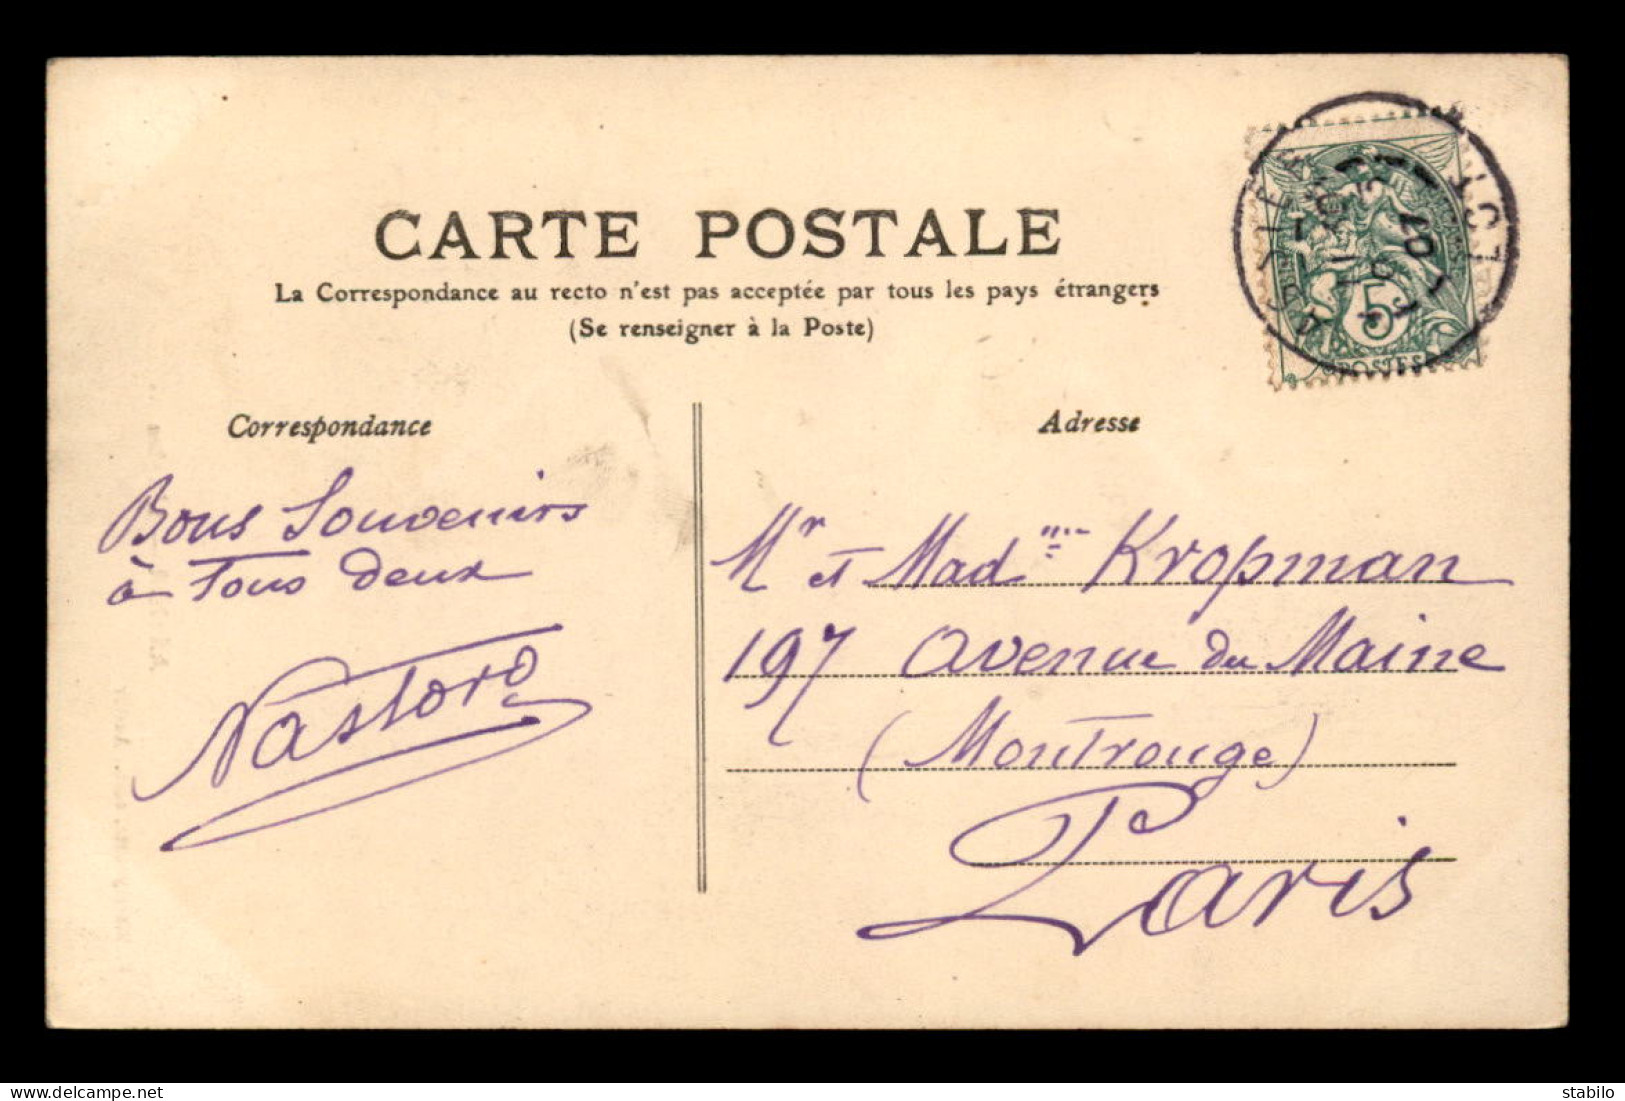 CARTE POSTALE
La Correspondance au recto n'est pas acceptée par tous les pays étrangers
(Se renseigner à la Poste)
Correspondance
Adresse
Bons Souvenirs
à Tous deux
Nastoro
Mr et Mad Kropman
197 Avenue du Maine
(Montrouge)
Paris
5
POSTES
delcampe.net
stabilo